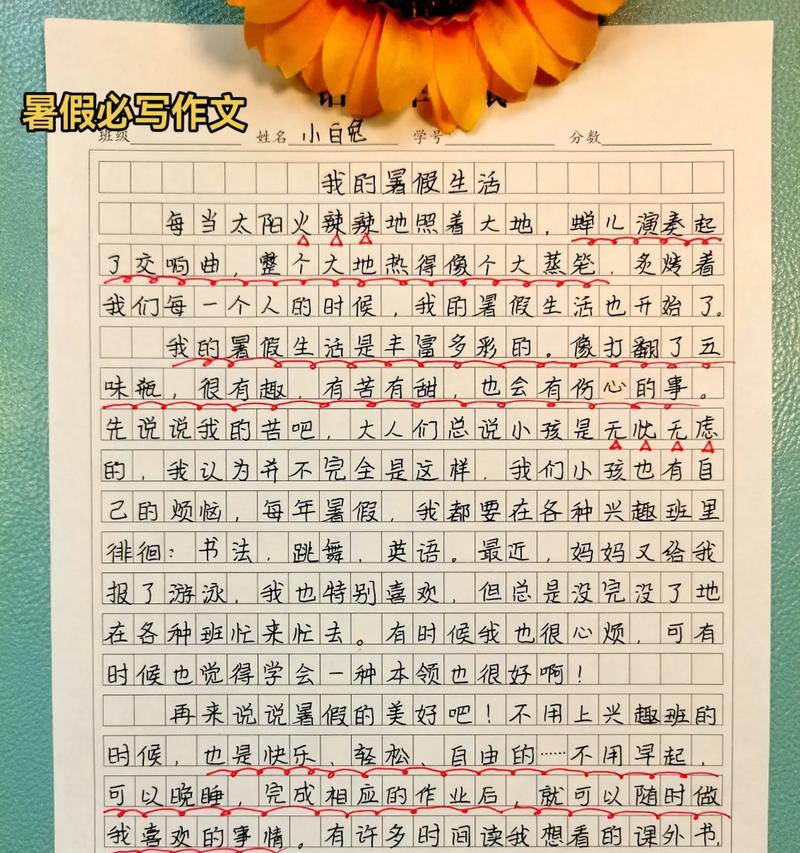 暑假必写作文
班级 姓名 小白兔 学号 分数
我的暑假生活
每当太阳火辣辣地照着大地，蝉儿演奏起
了交响曲，整个大地热得像个大蒸笼，炙烤着
我们每一个人的时候，我的暑假生活也开始了。
我的暑假生活是丰富多彩的。像打翻了五
味瓶，很有趣，有苦有甜，也会有伤心的事。
先说说我的苦吧，大人们总说小孩是无忧无虑
的，我认为并不完全是这样，我们小孩也有自
己的烦恼，每年暑假，我都要在各种兴趣班里
徘徊：书法，跳舞，英语。最近，妈妈又给我
报了游泳，我也特别喜欢，但总是没完没了地
在各种班忙来忙去。有时候我也很心烦，可有
时候也觉得学会一种本领也很好啊！
再来说说暑假的美好吧！不用上兴趣班的
时候，也是快乐、轻松、自由的……不用早起，
可以晚睡，完成相应的作业后，就可以随时做
我喜欢的事情。有许多时间读我想看的课外书，